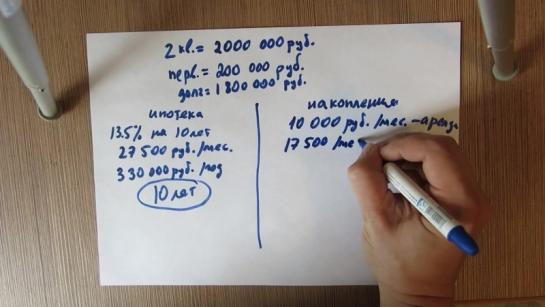 2 кв. = 2000 000 руб.
перв. = 200 000 руб.
долг = 1 800 000 руб.
ипотека
13.5% на 10 лет
27 500 руб./мес.
330 000 руб./год
10 лет
накопления
10 000 руб./мес. – аренда
17 500 /ме